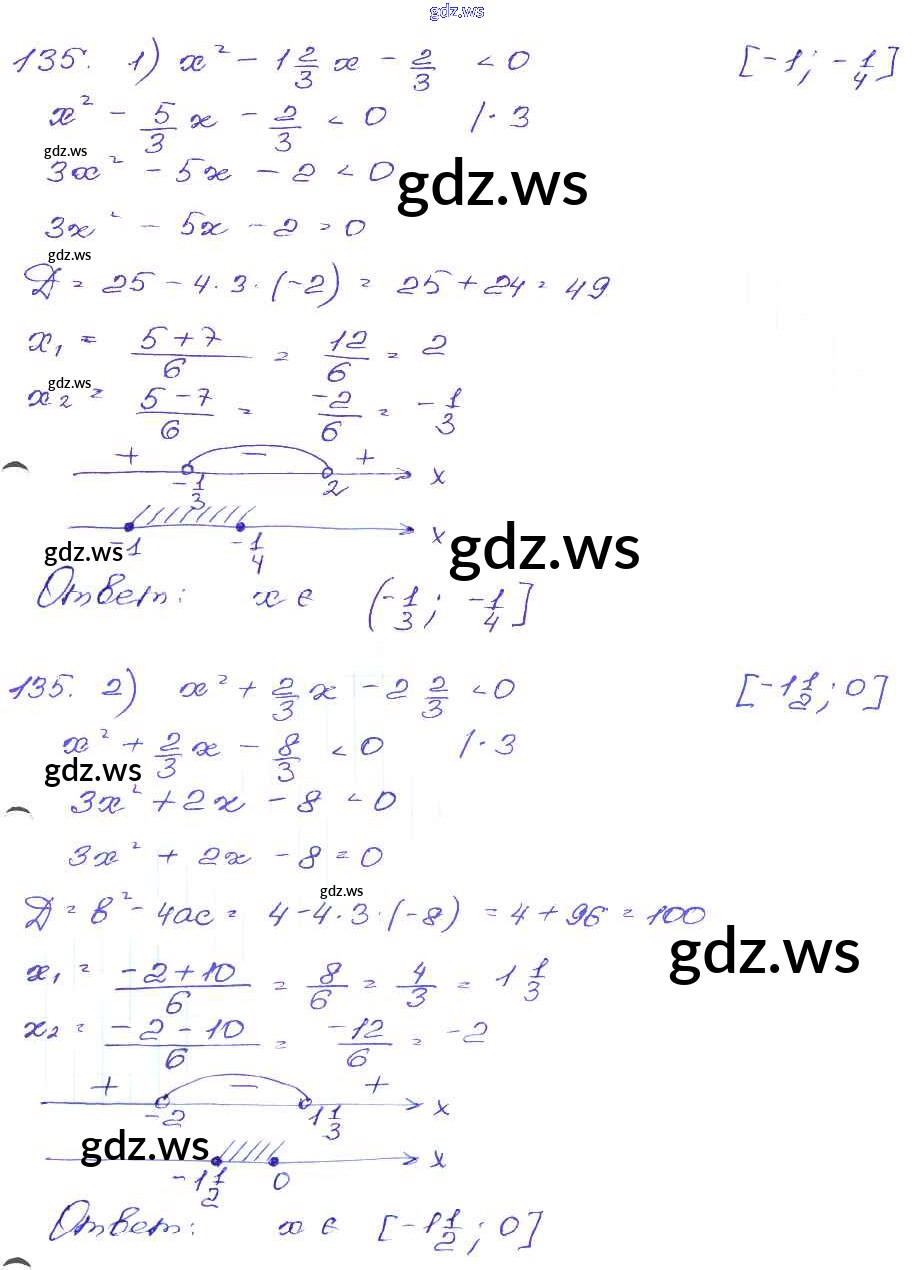 gdz.ws
135. 1) x² - 1 2/3 x - 2/3 < 0 [-1; -1/4]
x² - 5/3 x - 2/3 < 0 |·3
gdz.ws
3x² - 5x - 2 < 0
gdz.ws
3x² - 5x - 2 = 0
gdz.ws
Д = 25 - 4·3·(-2) = 25 + 24 = 49
x₁ = (5+7)/6 = 12/6 = 2
gdz.ws
x₂ = (5-7)/6 = -2/6 = -1/3
+ - + x
-1/3 2
x
gdz.ws -1 -1/4 gdz.ws
Ответ: x ∈ (-1/3; -1/4]
135. 2) x² + 2/3 x - 2 2/3 < 0 [-1 1/2; 0]
x² + 2/3 x - 8/3 < 0 |·3
gdz.ws
3x² + 2x - 8 < 0
3x² + 2x - 8 = 0
gdz.ws
Д = b² - 4ac = 4 - 4·3·(-8) = 4 + 96 = 100
gdz.ws
x₁ = (-2+10)/6 = 8/6 = 4/3 = 1 1/3
x₂ = (-2-10)/6 = -12/6 = -2
+ - + x
-2 1 1/3
gdz.ws x
-1 1/2 0
Ответ: x ∈ [-1 1/2; 0]